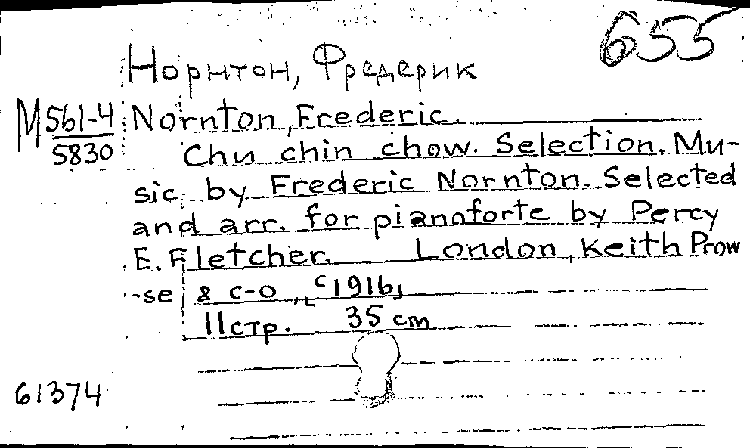 655
Норнтон, Фредерик
M561-4
5830
Nornton, Frederic.
Chu chin chow. Selection. Mu-
sic. by Frederic Nornton. Selected
and arr. for pianoforte by Percy
E. Fletcher. London, Keith Prow
-se & c-o, [c1916]
11 стр. 35 cm
61374